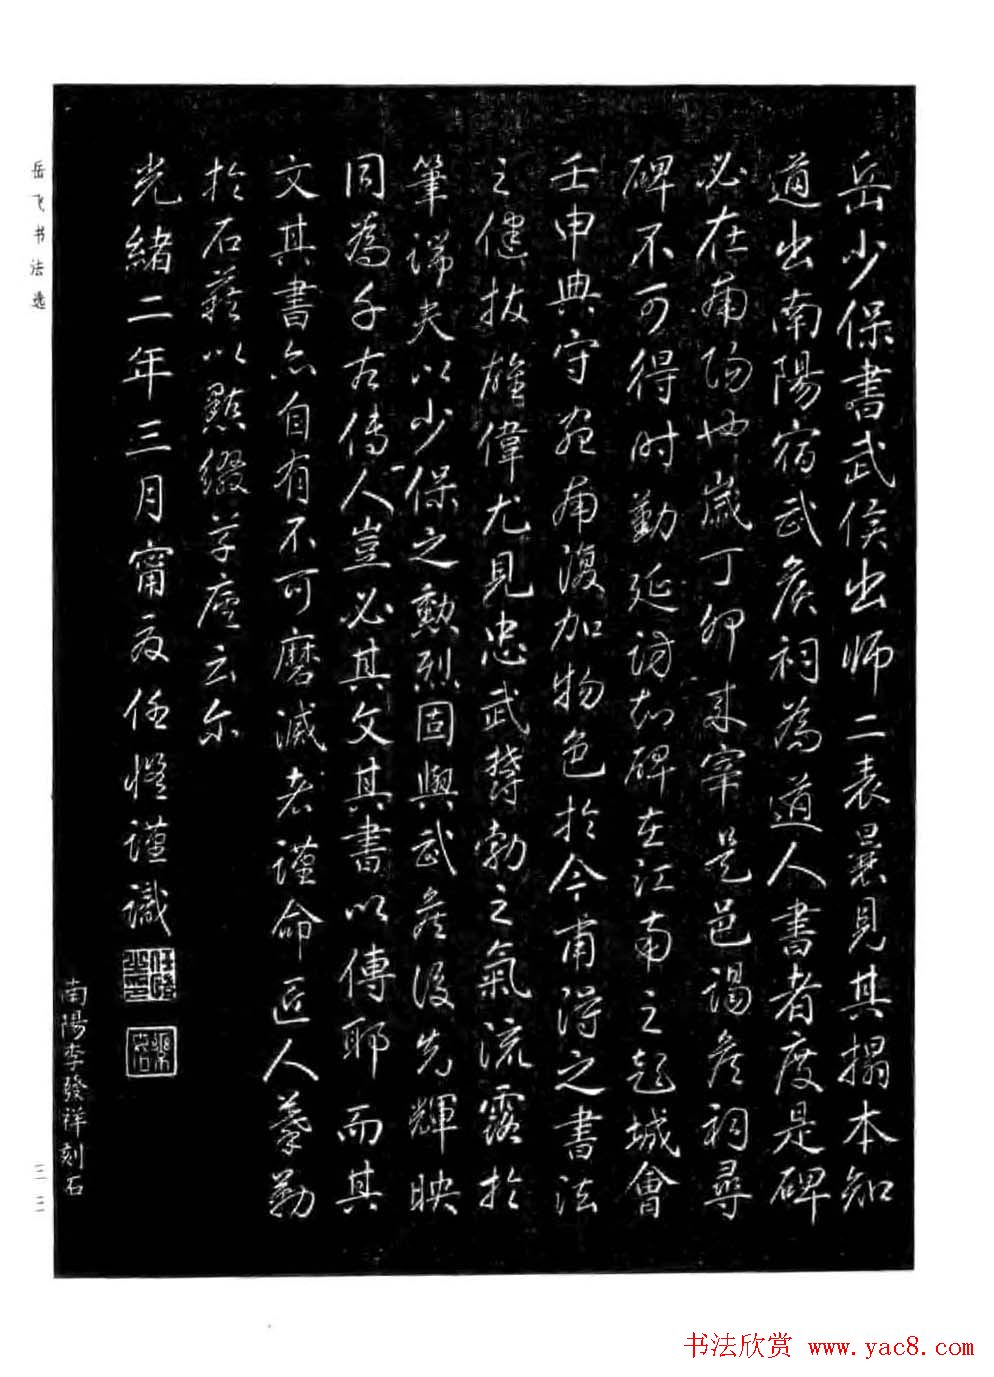 岳少保書武侯出师二表曩見其搨本知
道出南陽宿武侯祠為道人書者度是碑
必在南陽也歲丁卯来宰是邑謁侯祠尋
碑不可得时勤延訪知碑在江南之彭城會
壬申典守宛南復加物色於今甫淂之書法
之健拔雄偉尤見忠武欝勃之氣流露於
筆端夫以少保之勲烈固與武侯後先輝映
同為千古傳人豈必其文其書以傳耶而其
文其書亦自有不可磨滅者谨命匠人摹勒
於石藉以點綴草廬云尔
光緒二年三月甯夏任愷谨識
南陽李發祥刻石
岳飞书法选
三二
书法欣赏 www.yac8.com